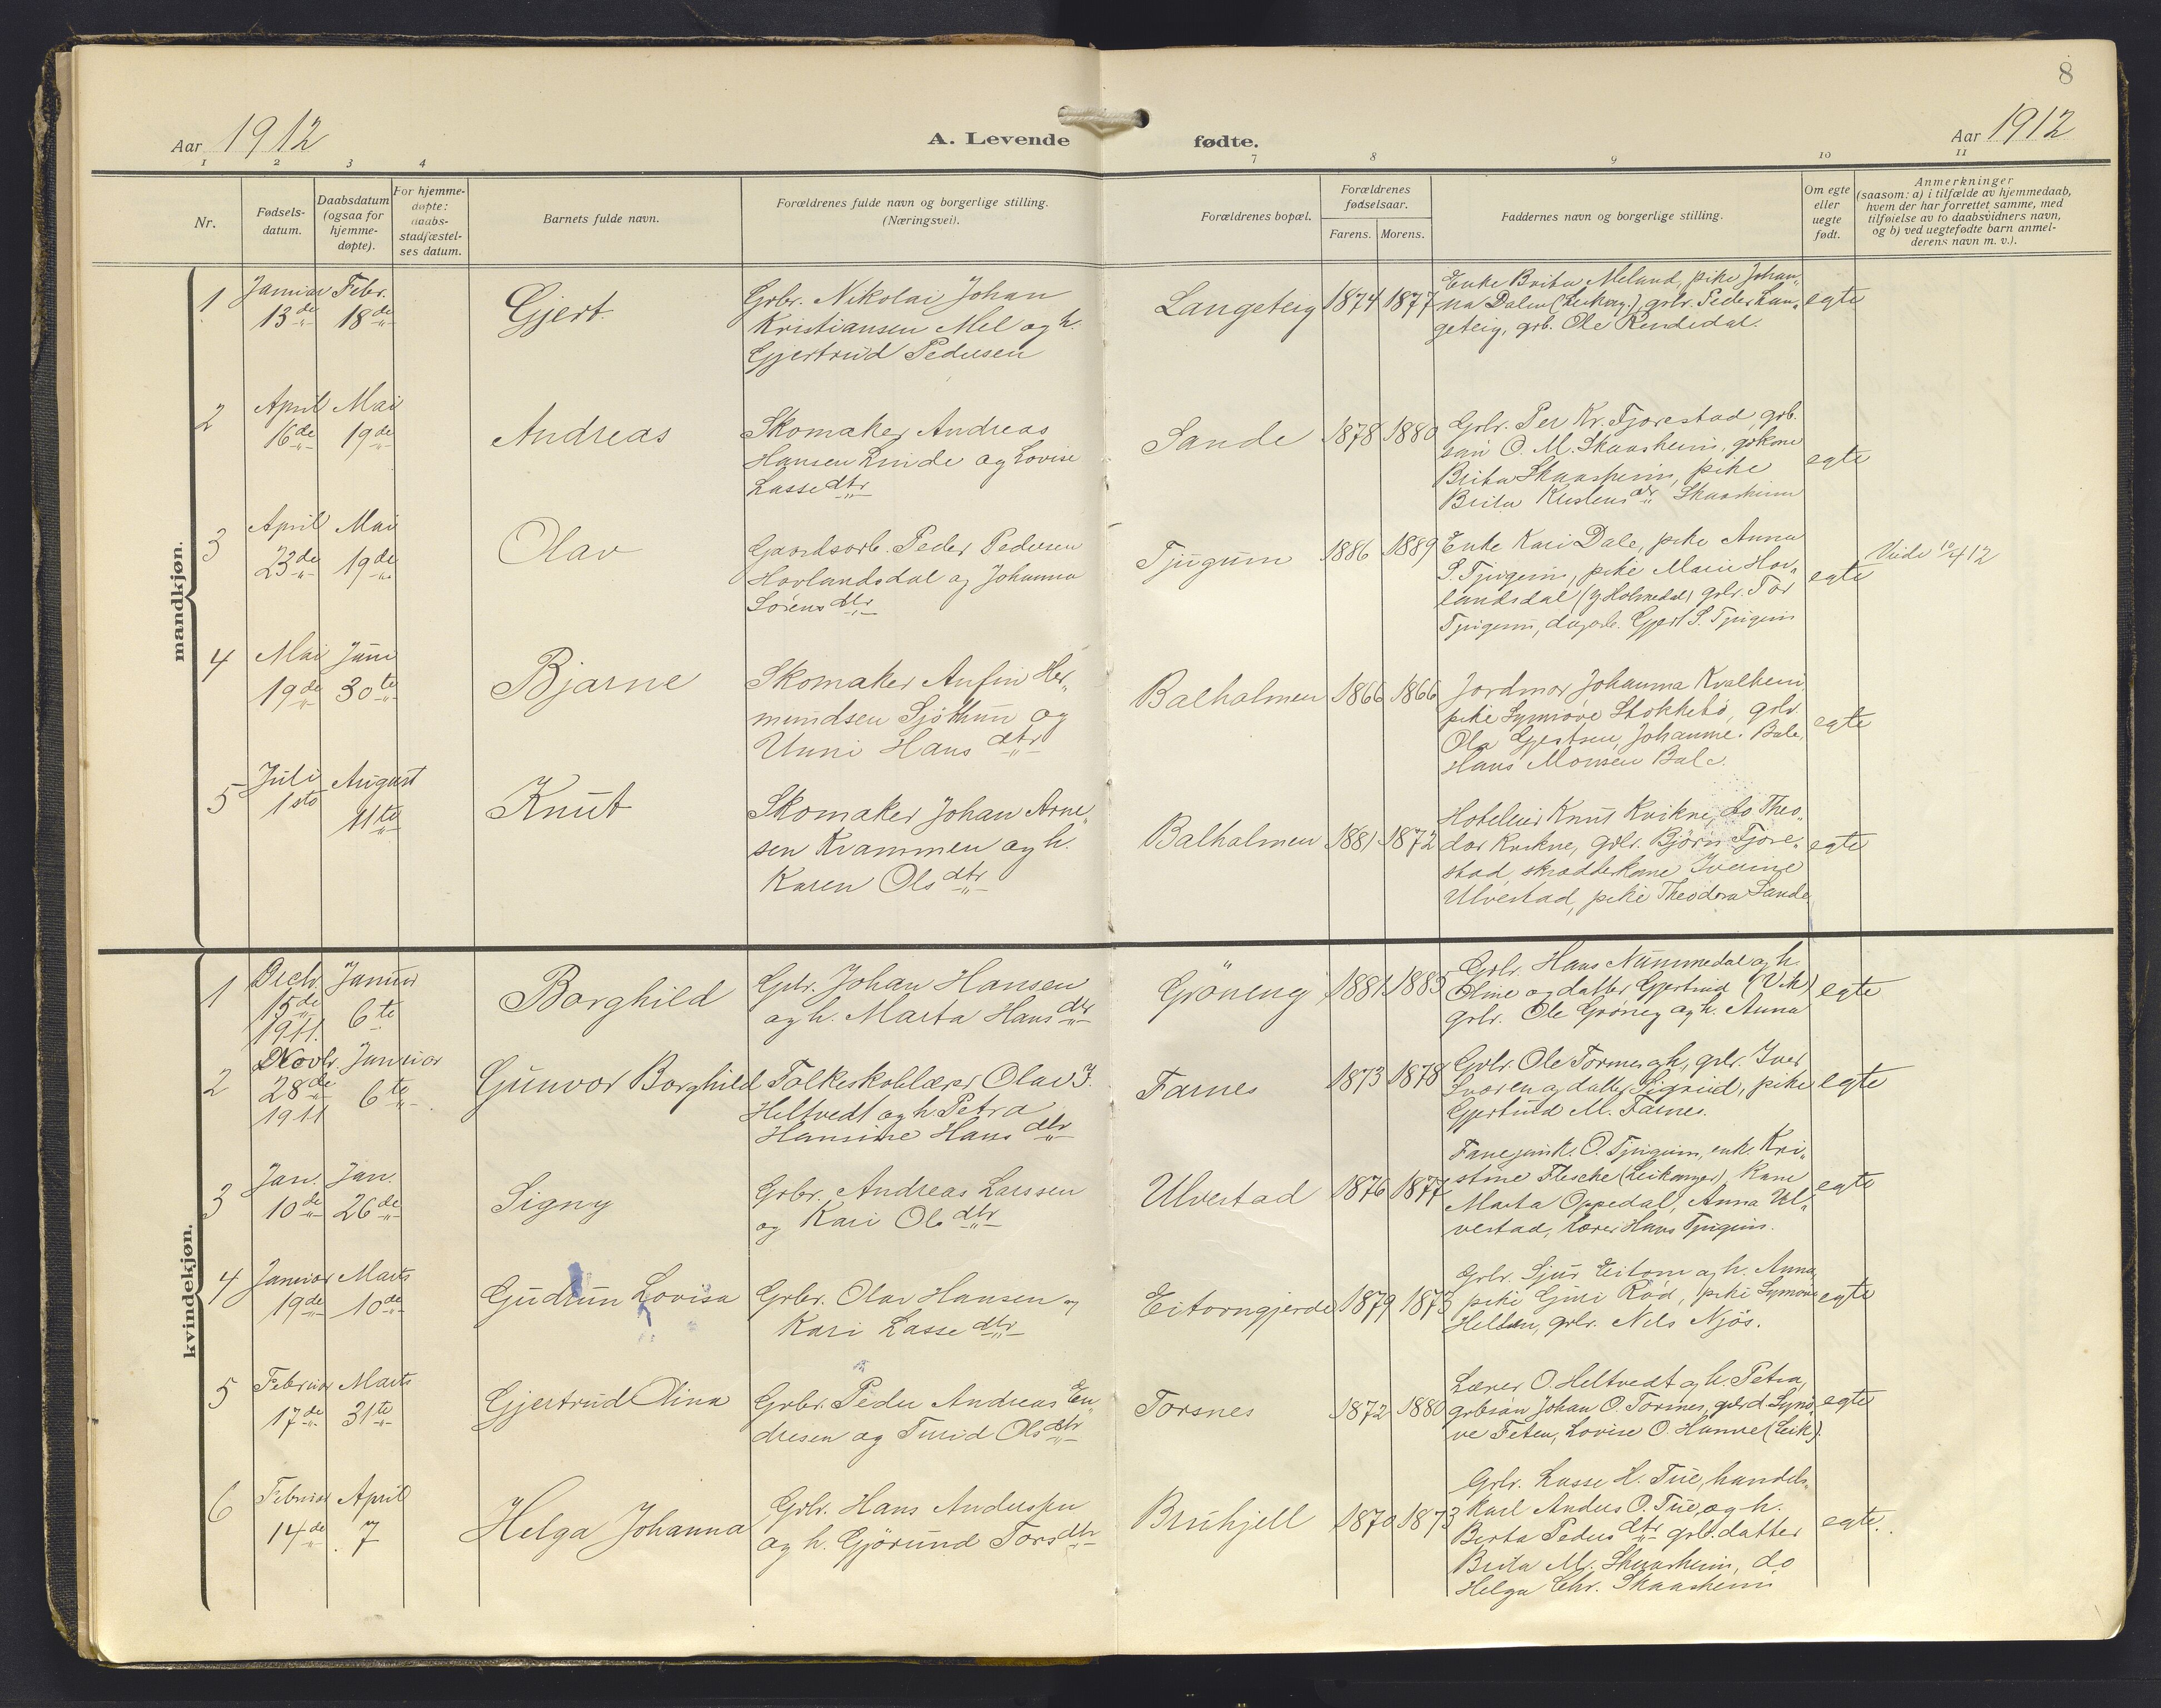 8
Aar 1912
A. Levende fødte.
Aar 1912
1 2 3 4 7 8 9 10 11
Nr.
Fødsels-
datum.
Daabsdatum
(ogsaa for
hjemme-
døpte).
For hjemme-
døpte:
daabs-
stadfæstel-
ses datum.
Barnets fulde navn.
Forældrenes fulde navn og borgerlige stilling.
(Næringsvei).
Forældrenes bopæl.
Forældrenes
fødselsaar.
Farens. Morens.
Faddernes navn og borgerlige stilling.
Om egte
eller
uegte
født.
Anmerkninger
(saasom: a) i tilfælde av hjemmedaab,
hvem der har forrettet samme, med
tilføielse av to daabsvidners navn,
og b) ved uegtefødte barn anmel-
derens navn m. v.).
mandkjøn.
1
Januar
13de
Febr.
18de
Gjert
Grbr. Nikolai Johan
Kristiansen Mel og h.
Gjertrud Pedersen
Langeteig
1874 1877
Enke Brita Meland, pike Johan-
na Dalen (Leikang.) grbr. Peder Lan-
geteig, grb. Ole Rendedal.
egte
2
April
16de
Mai
19de
Andreas
Skomaker Andreas
Hansen Linde og Lovise
Lassedtr
Sande
1878 1880
Grbr. Per Kr. Tjorestad, grb.
søn O. M. Skaasheim, grkone
Brita Skaasheim, pike
Brita Kristensdr Skaasheim
egte
3
April
23de
Mai
19de
Olav
Gaardsarb. Peder Pedersen
Hovlandsdal og Johanna
Sørensdtr
Tjugum
1886 1889
Enke Kari Dale, pike Anna
S. Tjugum, pike Marie Hov-
landsdal (y Holmedal) grbr. Tor
Tjugum, Gjert S. Tjugum
egte
Viede 10/4 12
4
Mai
19de
Juni
30te
Bjarne
Skomaker Anfin Her-
mundsen Sjøthun og
Unni Hansdtr
Balholmen
1866 1866
Jordmor Johanna Kvalheim
pike Synnøve Stokkebø, grbr.
Ola Gjertsen, Johanne Bale,
Hans Monsen Bale.
egte
5
Juli
1ste
August
11te
Knut
Skomaker Johan Arne-
sen Kvammen og h.
Karen Olsdtr
Balholmen
1881 1872
Hotelleier Knut Kvikne, do Theo-
dor Kvikne, grbr. Bjørn Tjore-
stad, skrædderkone Iverine
Ulvestad, pike Theodora Sande
egte
kvindekjøn.
1
Decbr.
15de
1911.
Januar
6te
Borghild
Gbr. Johan Hansen
og h. Marta Hansdtr
Grøneng
1881 1885
Grbr. Hans Nummedal og h.
Oline og datter Gjertrud (Vik)
grbr. Ole Grøneng og h. Anna
egte
2
Novbr.
28de
1911
Januar
6te
Gunvor Borghild
Folkeskolelærer Olav J.
Heltvedt og h. Petra
Hansine Hansdtr
Farnes
1873 1878
Grbr. Ole Torsnes og h., grbr. Iver
Sværen og datter Sigrid, pike
Gjertrud M. Farnes.
egte
3
Jan.
10de
Jan.
26de
Signy
Grbr. Andreas Larssen
og Kari Olsdtr
Ulvestad
1876 1877
Fanejunk. O. Tjugum, enke Kri-
stine Flesche (Leikanger), kone
Marta Oppedal, Anna Ul-
vestad, lærer Hans Tjugum.
egte
4
Januar
19de
Marts
10de
Gudrun Lovisa
Grbr. Olav Hansen og
Kari Lassedtr
Eitorngjerde
1879 1873
Grbr. Sjur Eitorn og h. Anna,
pike Guri Rød, pike Synnøve
Hellen, grbr. Nils Njøs.
egte
5
Februar
17de
Marts
31te
Gjertrud Olina
Grbr. Peder Andreas En-
dresen og Turid Olsdtr
Torsnes
1872 1880
Lærer O. Heltvedt og h. Petra,
grbsøn Johan O. Torsnes, grbrd. Synø-
ve Feten, Lovise O. Hamre (Leik.)
egte
6
Februar
14de
April
7
Helga Johanna
Grbr. Hans Anderssen
og h. Gjørund Torsdtr
Bruhjell
1870 1873
Grbr. Lasse H. Tue, handels-
karl Anders O. Tue og h.
Berta Pedersdtr grbr.datter
Brita M. Skaasheim, do
Helga Chr. Skaasheim
egte.